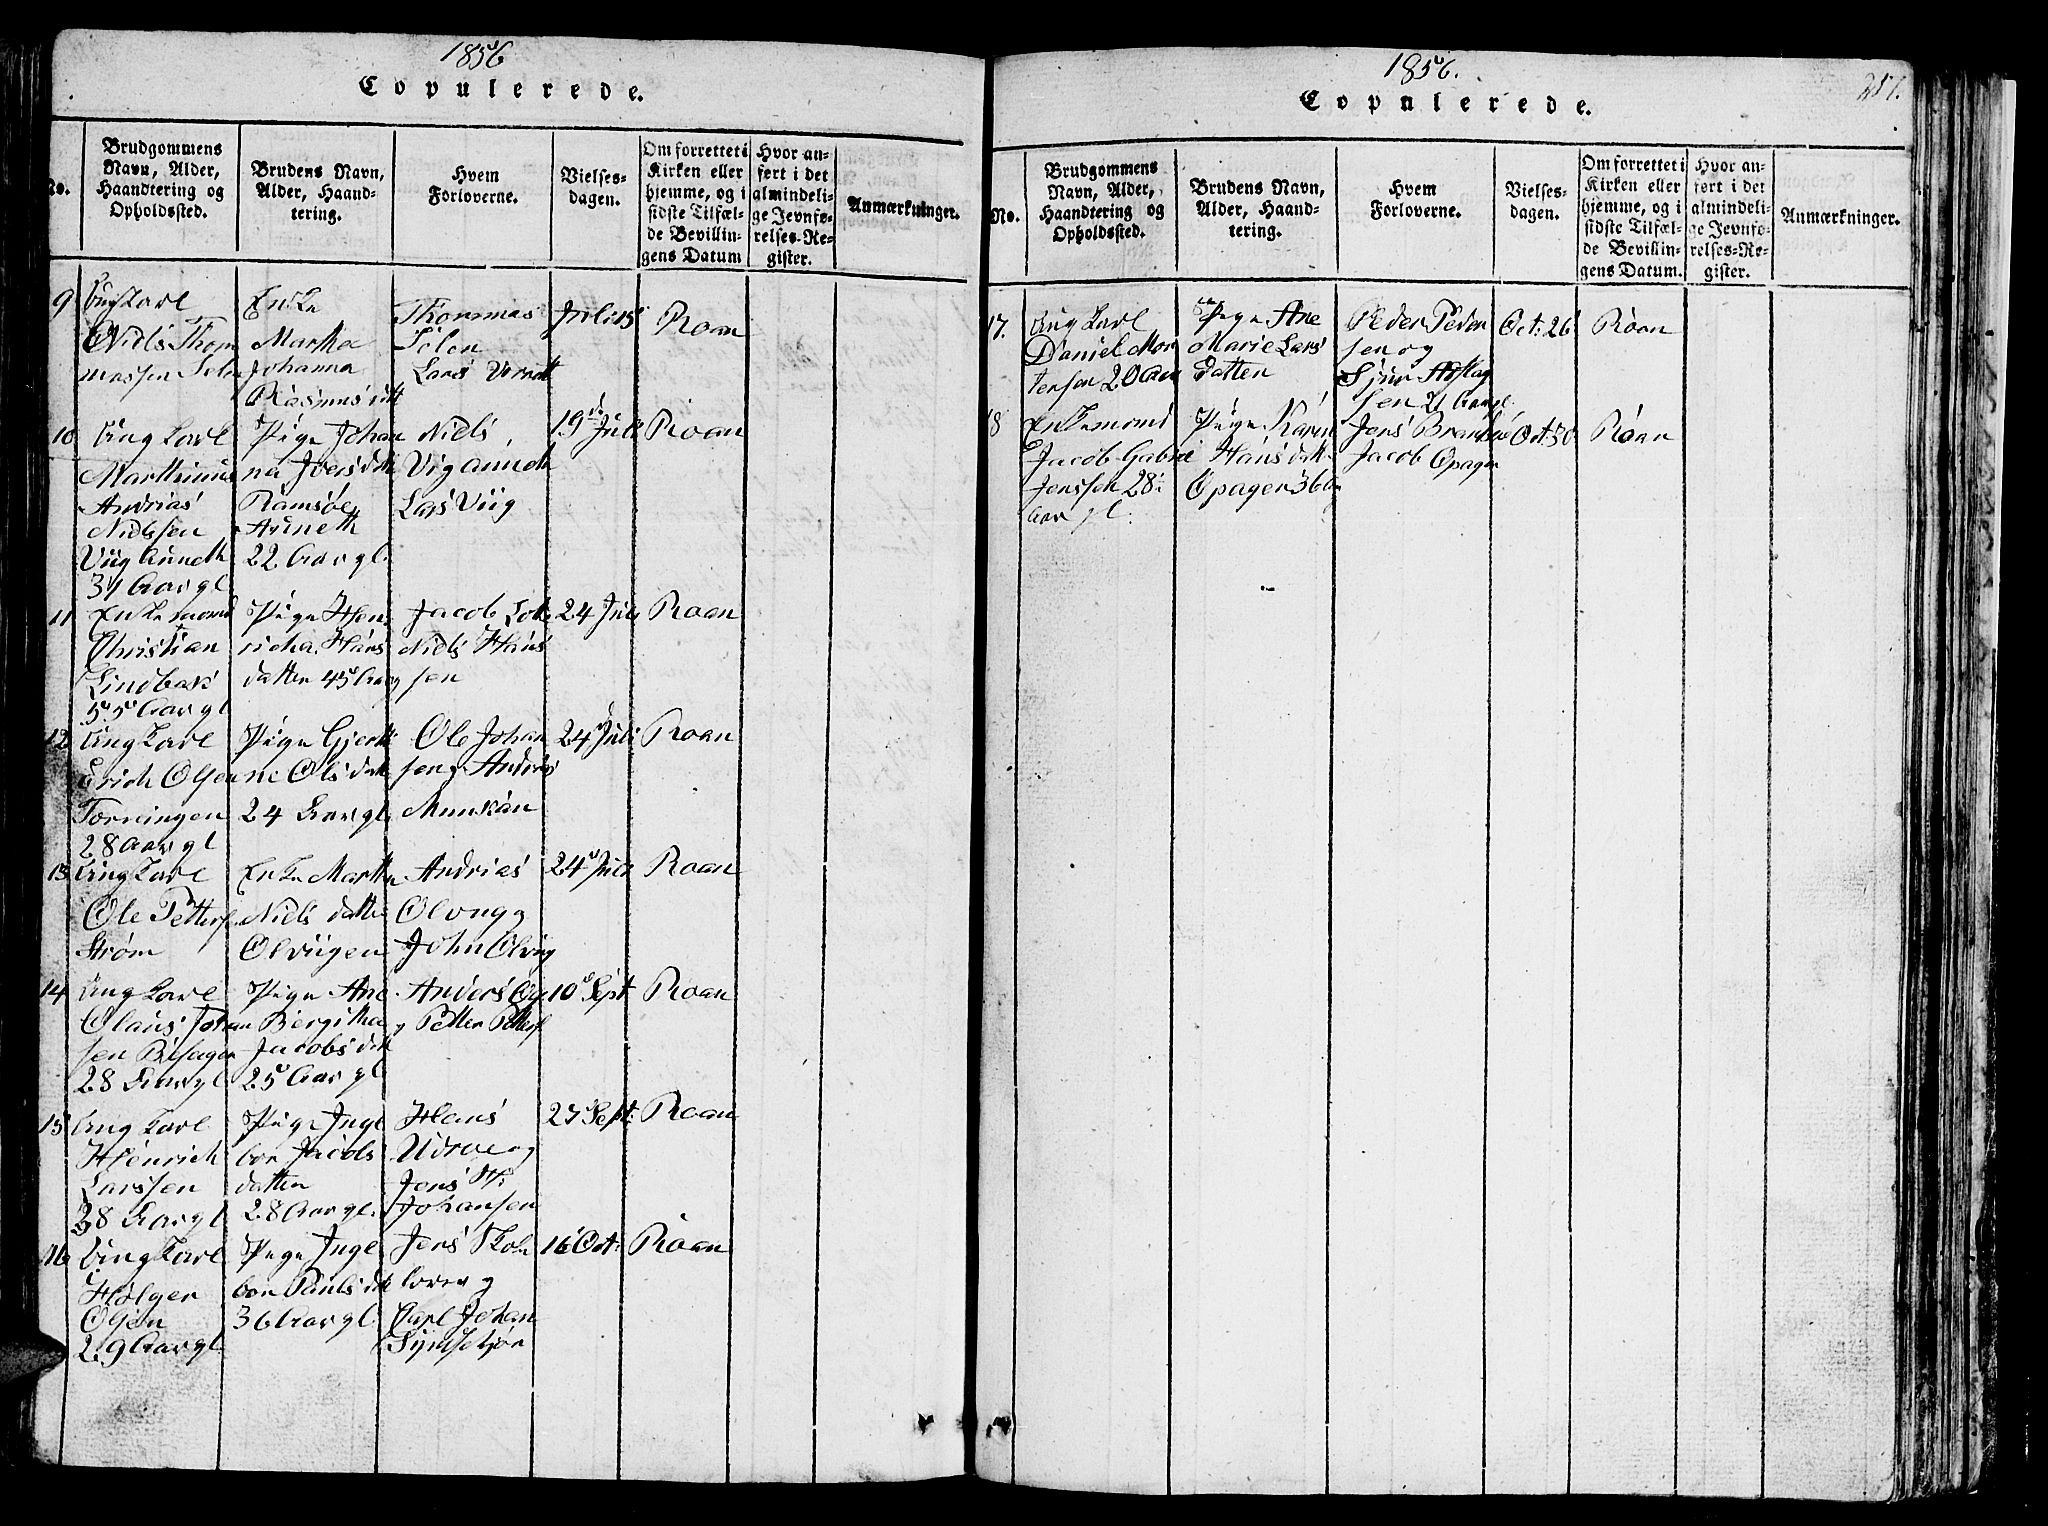 1856
Copulerede.
No.
Brudgommens
Navn, Alder,
Haandtering og
Opholdssted.
Brudens Navn,
Alder, Haand-
tering.
Hvem
Forloverne.
Vielses-
dagen.
Om forrettet i
Kirken eller
hjemme, og i
sidste Tilfæl-
de Bevillin-
gens Datum
Hvor an-
ført i det
almindeli-
ge Jevnfø-
relses-Re-
gister.
Anmærkninger.
9
Ung Karl
Niels Thom
massen Selen
Enke
Martha
Johanna
Rasmusdatt
Thommas
Selen
Lars
Juli 15
Roan
10
Ung Karl
Marthinus
Andrias
Nielssen
Viig Auneth
31 Aar gl
Pige Johan
na Iversdatt
Ramsøe
Auneth
22 Aar gl.
Niels
Vig Auneth
Lars Viig
19de Juli
Roan
11
Enkemand
Christian
Lindbak
55 Aar gl
Pige Hen
richa Hans
datter 45 Aar g
Jacob
Niels Hans
sen
24 Juli
Roan
12
Ung Karl
Erich Olsen
Torningen
28 Aar gl
Pige Gjert
ine Olsdatt
24 Aar gl
Ole Johan
sen g Andreas
Munkan
24 Juli
Roan
13
Ung Karl
Ole Petters
Strøm
Enke Martha
Niels datter
Olviigen
Andrias
Olvug g
John Olvug
24 Juli
Roan
14
Ung Karl
Olaus Johan
sen Besagen
28 Aar gl
Pige Ane
Bergitha
Jacobsdatt
25 Aar gl
Anders
g Petter Petters
10 Sept
Roan
15
Ung Karl
Henrich
Larssen
28 Aar gl
Pige Inge
bor Jacobs
datter
28 Aar gl.
Hans
Udroe og
Jens H.
Johansen
27 Sept.
Roan
16
Ung Karl
Holger
Olsen
29 Aar gl
Pige Inge
bor Paulsdatt
36 Aar gl.
Jens Skole
lærer g
Carl Johan
Symsetjøn
16 Oct.
Roan
1856.
251.
Copulerede.
No.
Brudgommens
Navn, Alder,
Haandtering og
Opholdssted.
Brudens Navn,
Alder, Haand-
tering.
Hvem
Forloverne.
Vielses-
dagen.
Om forrettet i
Kirken eller
hjemme, og i
sidste Tilfæl-
de Bevillin-
gens Datum.
Hvor an-
ført i det
almindeli-
ge Jevnfø-
relses-Re-
gister.
Anmærkninger.
17.
Ung Karl
Daniel Mor
tensen 20 Aar
Pige Ane
Marie Lars
datten
Peder Peder
sen og
Sjur Aslag
sen 21 Aar gl.
Oct. 26
Roan
18
Enkemand
Jacob Gabriel
Jenssen 28
Aar gl.
Pige Karen
Hans datt
Opager 36 Aar
Jens
Jacob Opager
Oct. 30
Roan